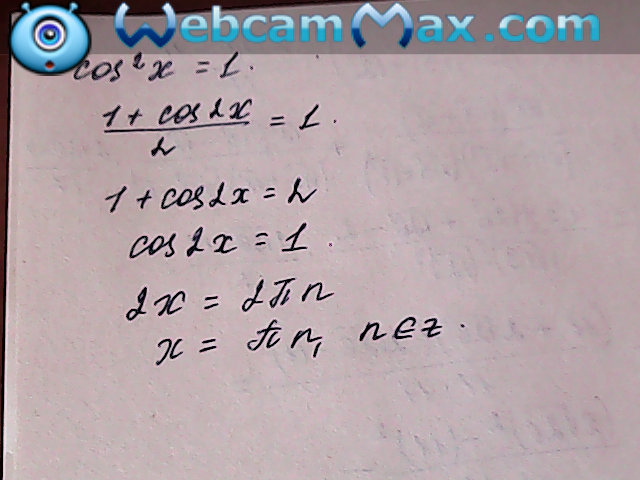 WebcamMax.com
cos²x = 1.
(1 + cos2x)/2 = 1.
1 + cos2x = 2
cos2x = 1.
2x = 2πn
x = πn, n∈z.